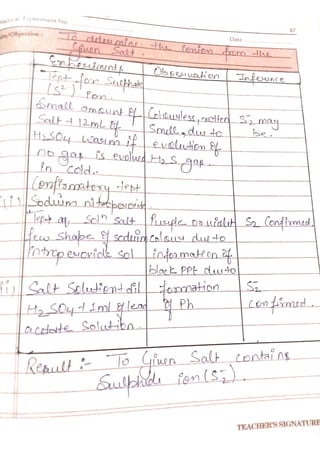 Practical Experiment No.
67
Aim/Objective :
Date
To determine the anion from the
Given Salt.
Experiments Observation Inference
Test for Sulphide
(S²⁻) Ion.
Small amount of Colourless, rotten S2⁻ may
Salt + 12ml of Smell, due to be.
H2SO4 warm if evolution of
no gas is evolved H2S gas.
in cold.
Confirmatory test
(i) Sodium
Test aq. Solⁿ Salt Purple or violet S2 Confirmed.
few shape of sodium colour due to
sol information of
black PPt due to
ii) Salt Solution + dil formation S2⁻
H2SO4 + 1ml of lead of Ph confirmed.
acetate Solution.
Result :- To Given Salt contains
Sulphide ion (S2⁻).
TEACHER'S SIGNATURE